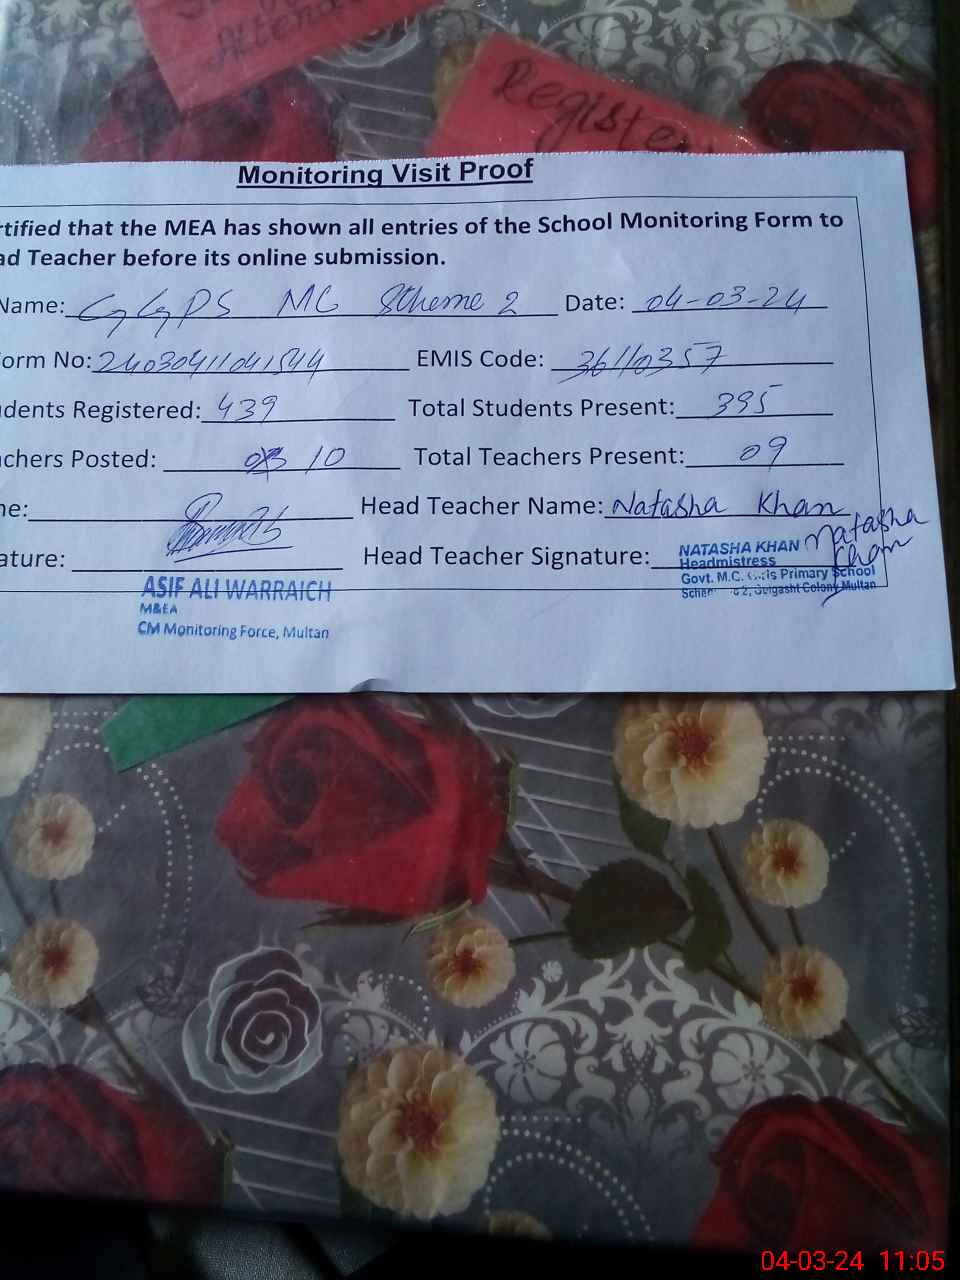 Atten
Register
Monitoring Visit Proof
rtified that the MEA has shown all entries of the School Monitoring Form to
ad Teacher before its online submission.
Name: GGPS MC Scheme 2 Date: 04-03-24
orm No: 24030411041544 EMIS Code: 36110357
dents Registered: 439 Total Students Present: 395
chers Posted: 10 Total Teachers Present: 09
ne: Head Teacher Name: Natasha Khan
ature: Head Teacher Signature: Natasha Khan
NATASHA KHAN
Headmistress
Govt. M.C. Primary School
2, Gulgasht Colony Multan
ASIF ALI WARRAICH
M&EA
CM Monitoring Force, Multan
04-03-24 11:05